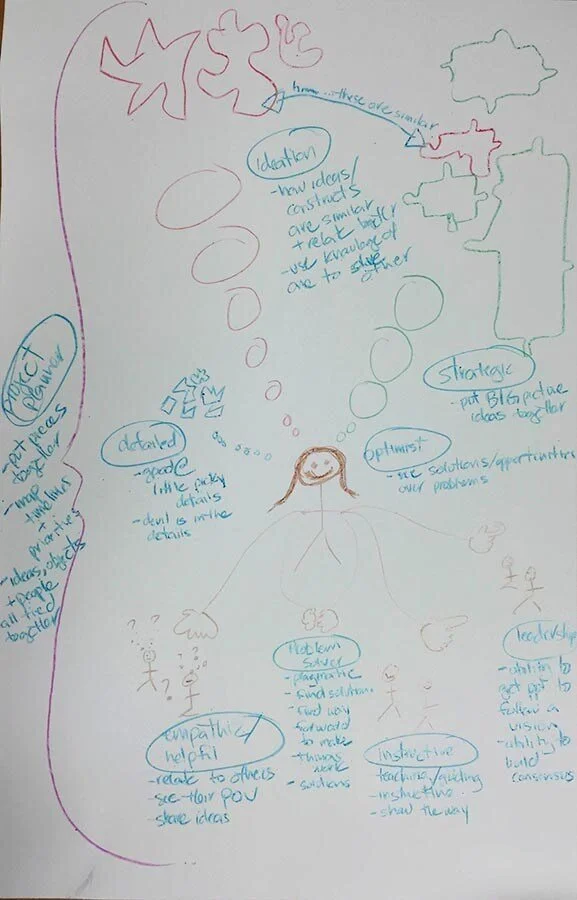 hmm...these are similar
ideation
- how ideas/
constructs
are similar
+ relate
- use knowledge of
one to solve
other
strategic
- put BIG picture
ideas together
project
planner
- put pieces
together
- map
timelines
+
priorities
- ideas, objects
+ people
all tied
together
detailed
- good @
little picky
details
- devil is in the
details
optimist
- see solutions/opportunities
over problems
? ? ?
? ? ?
?
empathic/
helpful
- relate to others
- see their POV
- share ideas
Problem
solver
- pragmatic
- find solution
- find way
forward
to make
things
work
- solutions
instructive
teaching/guiding
- instructing
- show the way
leadership
- ability to
get ppl to
follow a
vision
- ability to
build
consensus